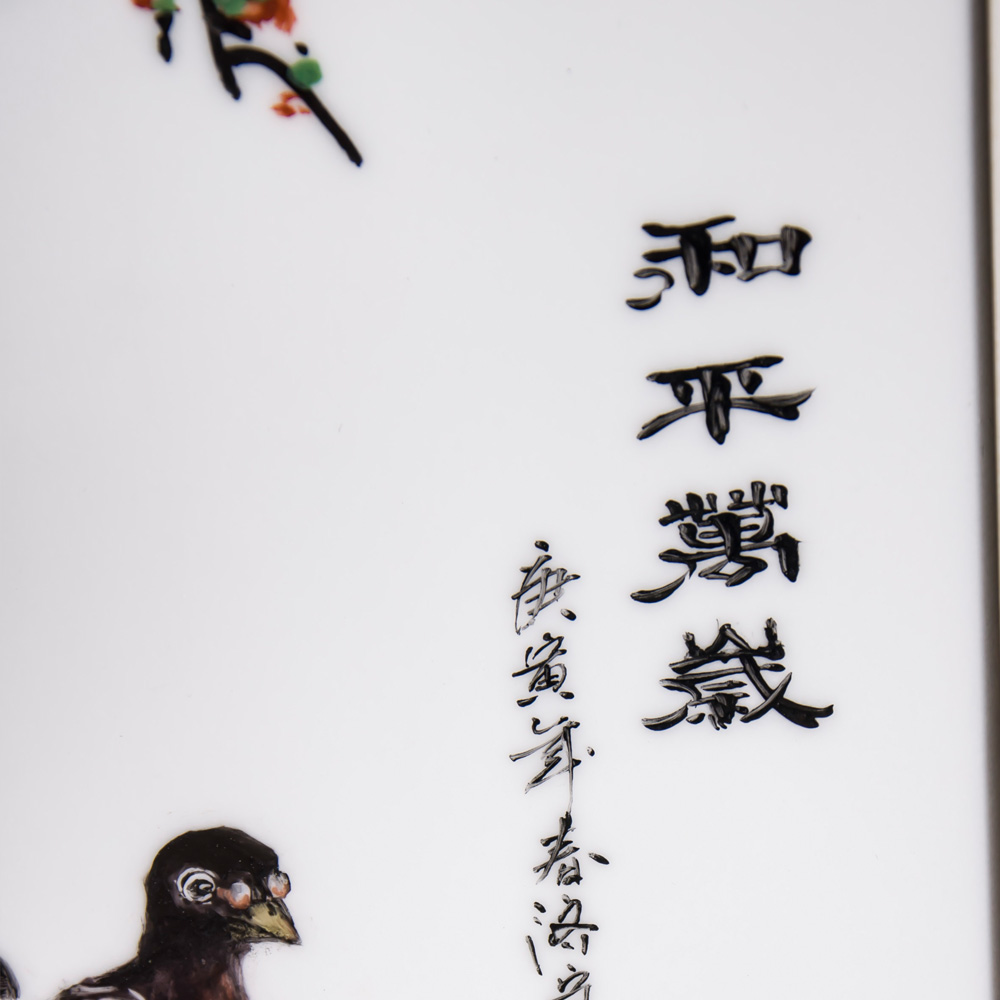 和平萬歲
庚寅年春